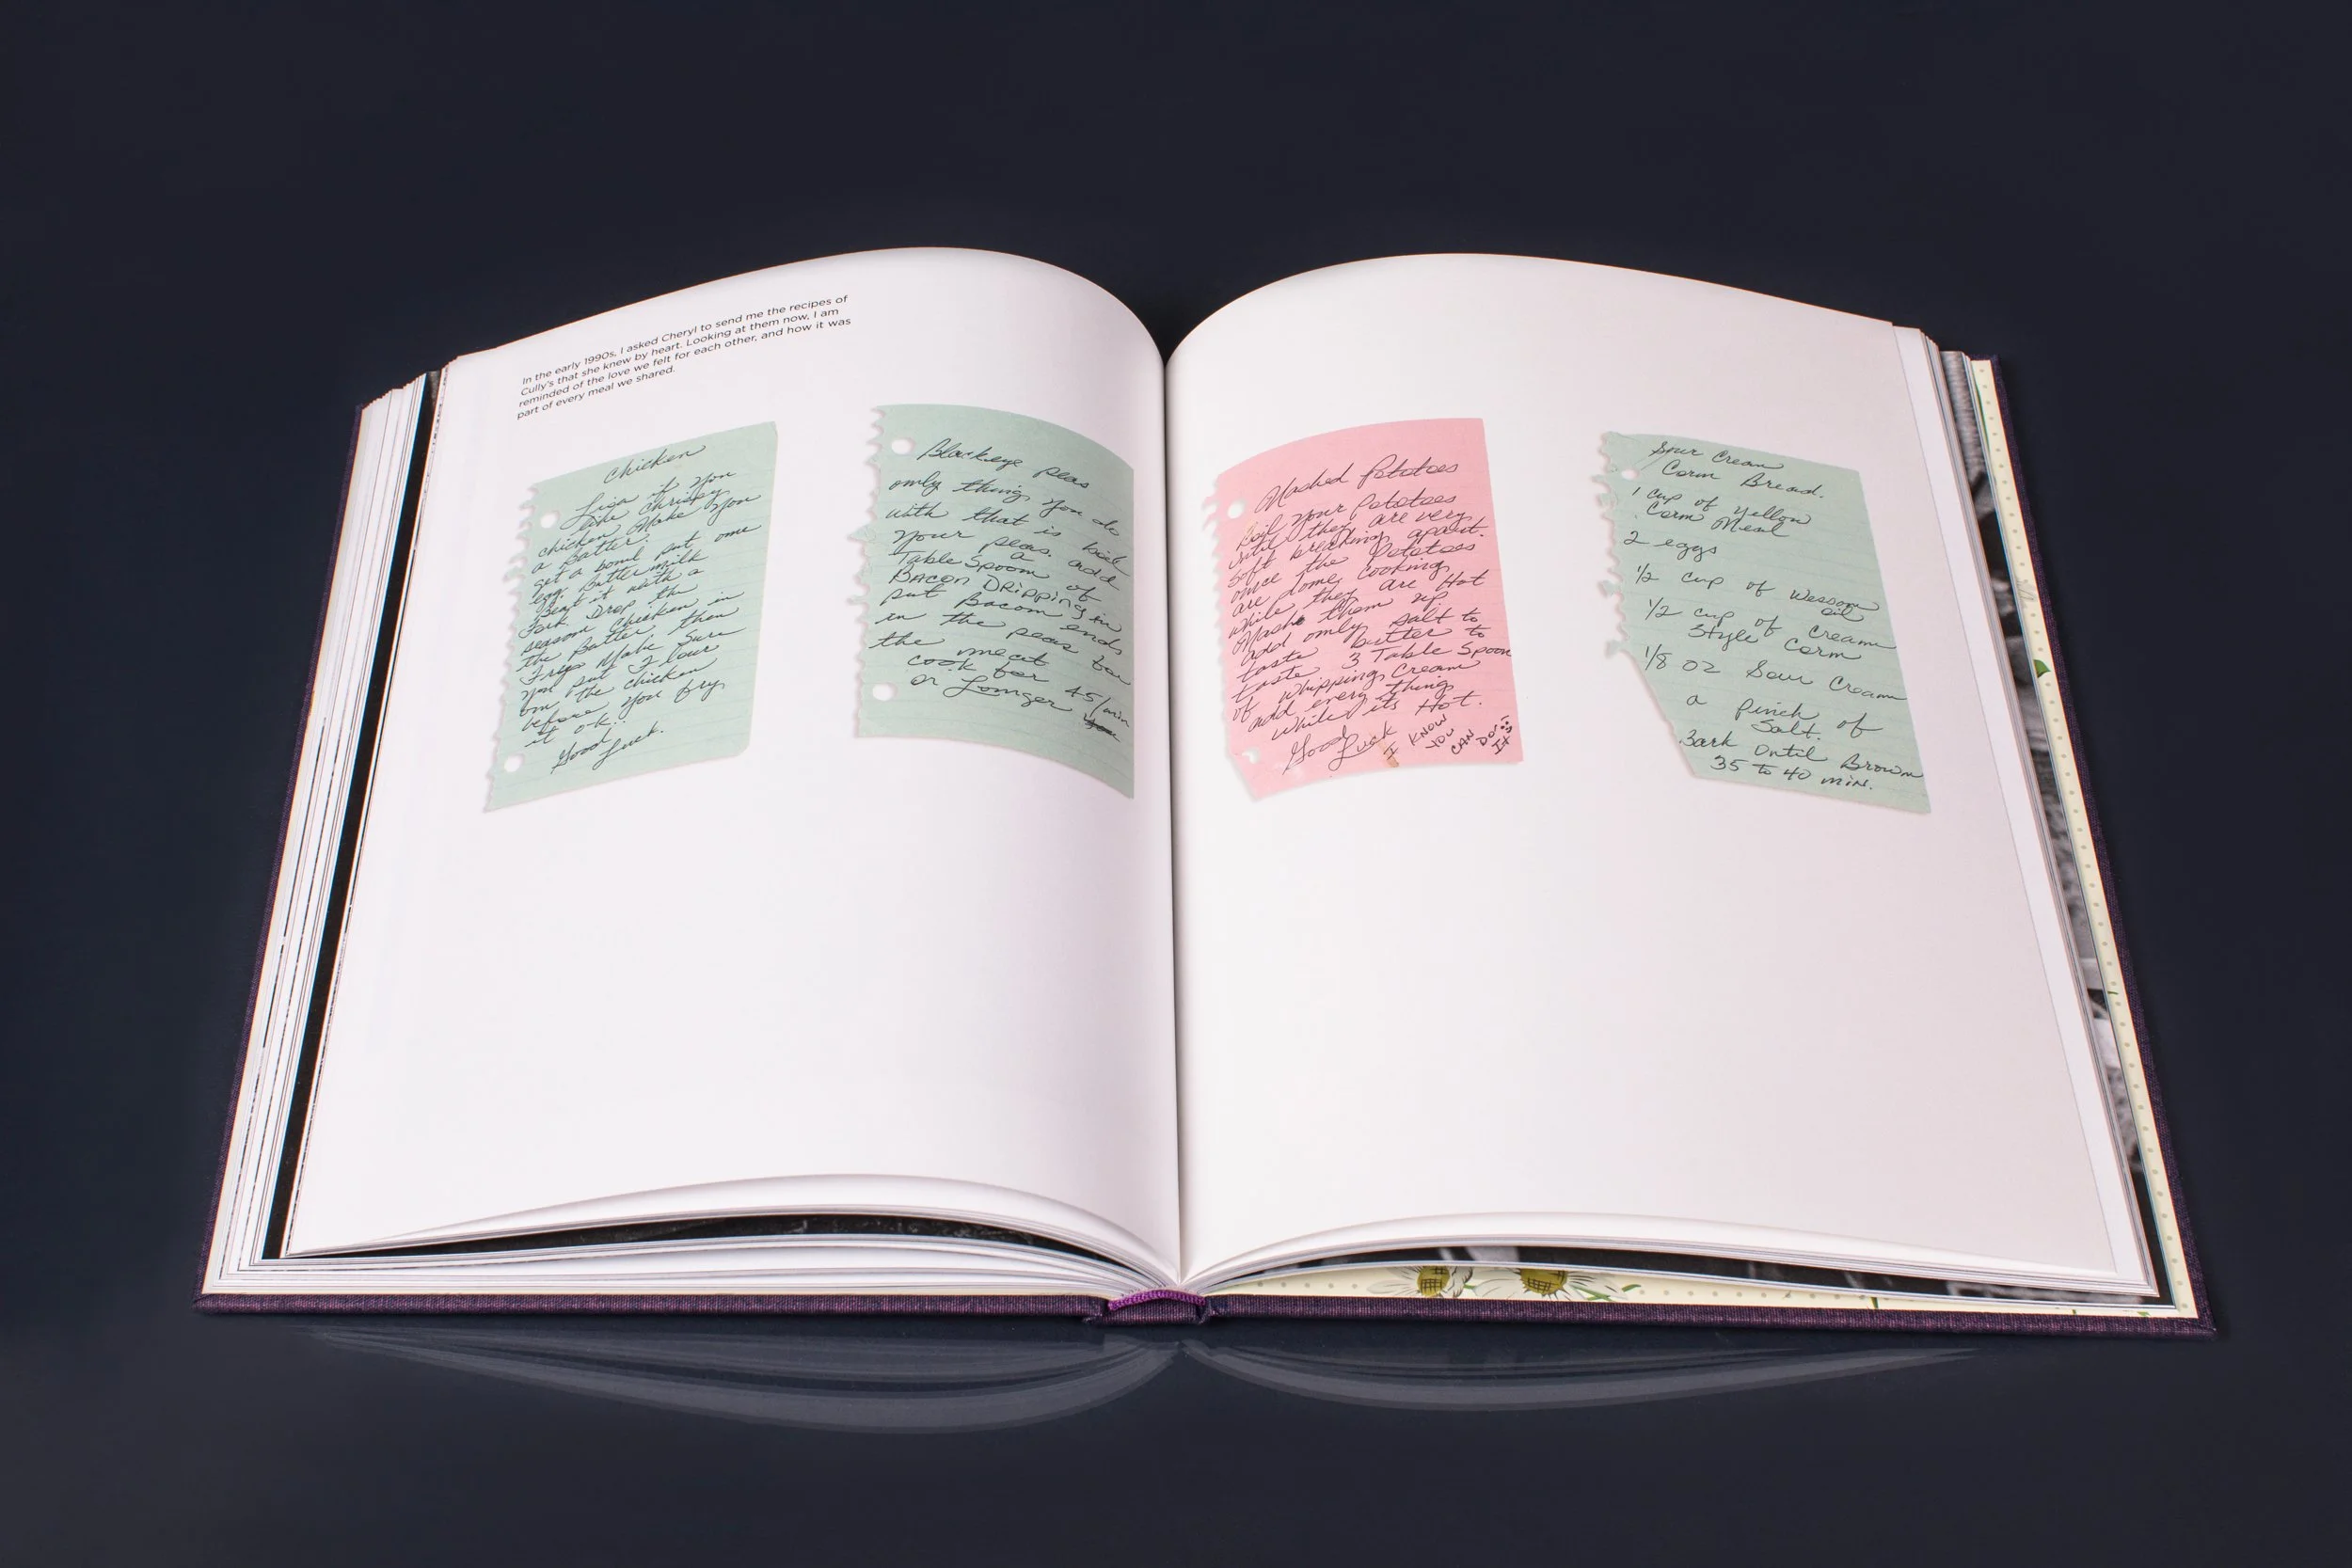 In the early 1990s, I asked Cheryl to send me the recipes of
Cully's that she knew by heart. Looking at them now, I am
reminded of the love we felt for each other, and how it was
part of every meal we shared.
Chicken
Lisa if you
like chrispy
chicken Make you
a Batter.
get a bowl put one
egg, Buttermilk
Beat it with a
Fork. Drop the
season chicken in
the Batter then
Frys Make Sure
you put Flour
on the chicken
before you fry
it o.k.!
Good
Luck.
Blackeye peas
only thing you do
with that is boil
your peas. add
a
Table Spoon of
Bacon Dripping in
put Bacon ends
in the peas for
the meat
cook for 45/min
or Longer
Mashed Potatoes
Boil your Potatoes
until they are very
soft breaking apart.
once the Potatoes
are done, cooking
while they are Hot
Mash them up
add only salt to
taste butter to
taste 3 Table Spoon
of whipping Cream
add every thing
while its Hot.
Good Luck
I KNOW
YOU
CAN
DO
IT
Sour Cream
Corn Bread.
1 cup of yellow
Corn Meal
2 eggs
1/2 cup of Wesson
oil
1/2 cup of Cream
Style Corn
1/8 oz Sour Cream
a pinch of
Salt.
Bark Until Brown
35 to 40 min.